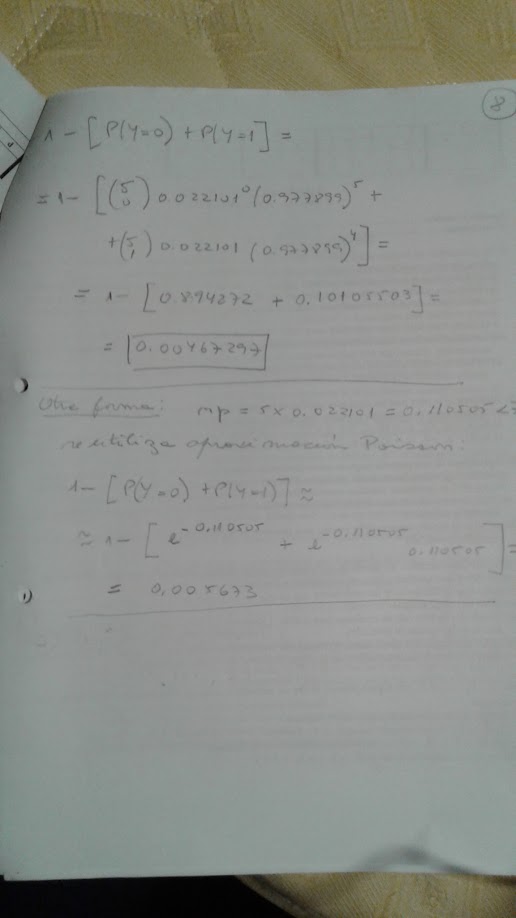 8
1 - [P(Y=0) + P(Y=1)] =
= 1 - [(5 0) 0.022101⁰ (0.977899)⁵ +
+ (5 1) 0.022101 (0.977899)⁴] =
= 1 - [0.894272 + 0.10105503] =
= 0.00467297
Otra forma: np = 5 x 0.022101 = 0.110505 <7
se utiliza aproximación Poisson:
1 - [P(Y=0) + P(Y=1)] ≈
≈ 1 - [e^-0.110505 + e^-0.110505 0.110505] =
= 0,005673